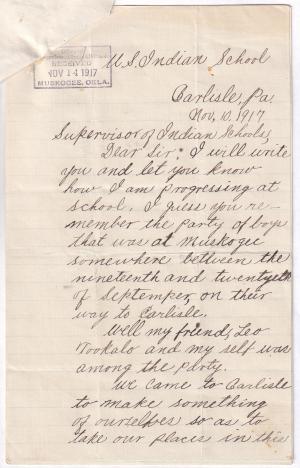 RECEIVED
NOV 14 1917
MUSKOGEE, OKLA.
U.S. Indian School
Carlisle, Pa.
Nov. 10, 1917
Supervisor of Indian Schools,
Dear Sir: I will write
you and let you know
how I am progressing at
school. I guess you re-
member the party of boys
that was at Muskogee
somewhere between the
nineteenth and twentyeth
of Septemper, on their
way to Carlisle.
Well my friend, Leo
Tookalo and my self was
among the party.
We came to Carlisle
to make something
of ourselfes so as to
take our places in this